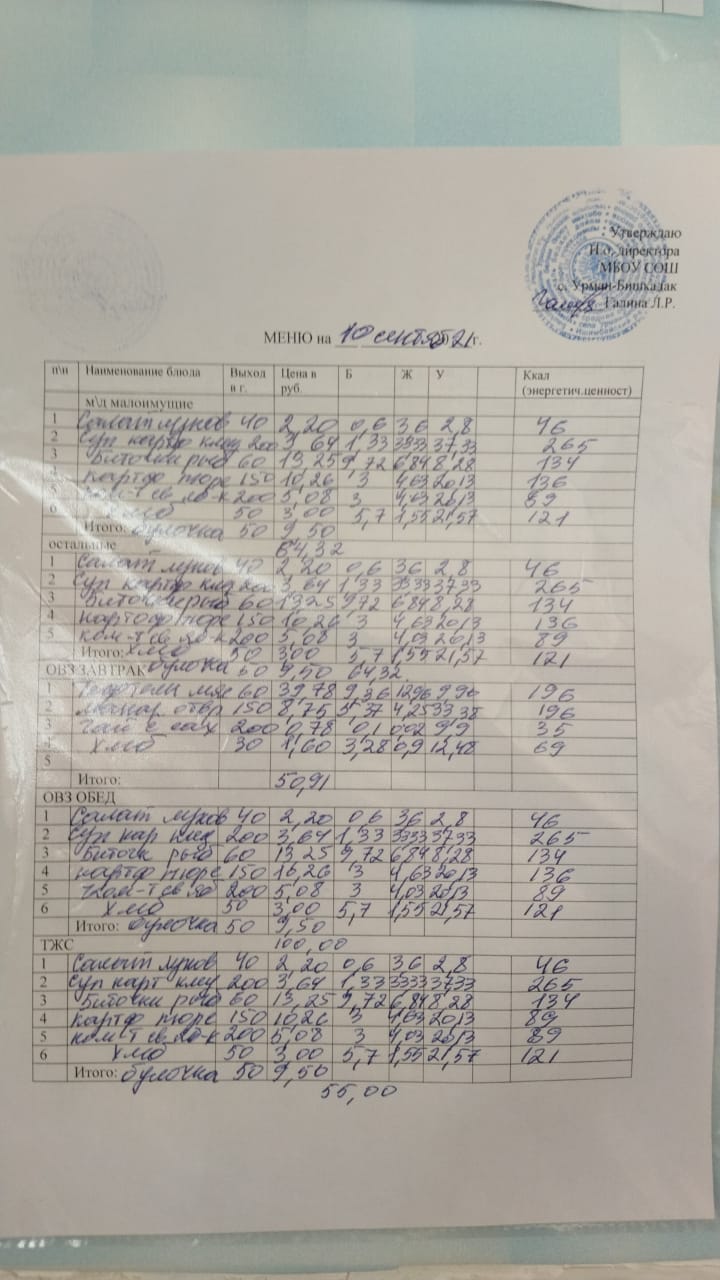 Утверждаю
И.о. директора
МБОУ СОШ
с. Урман-Бишкадак
Галина Л.Р.
МЕНЮ на 10 сентяб 21г.
п\н Наименование блюда Выход в г. Цена в руб. Б Ж У Ккал (энергетич.ценност)
м\д малоимущие
1 Салат луков 40 2,20 0,6 36 2,8 46
2 Суп картоф клец 200 3,64 1,33 3333 37,33 265
3 Биточки рыб 60 13,25 9,72 6,84 8,28 134
4 картоф пюре 150 10,26 3 4,63 2013 136
5 ком-т св яб-к 200 5,08 3 4,03 2013 89
6 хлеб 50 3,00 5,7 1,55 21,57 121
Итого: булочка 50 9,50
64,32
остальные
1 Салат луков 40 2,20 0,6 36 2,8 46
2 Суп картоф клец 200 3,64 1,33 3333 3733 265
3 Биточки рыб 60 13,25 972 6,84 8,28 134
4 картоф пюре 150 10,26 3 4,63 2013 136
5 ком-т св яб-к 200 5,08 3 4,03 2013 89
Итого: хлеб 50 3,00 5,7 1,55 21,57 121
ОВЗ ЗАВТРАК булочка 50 9,50 64,32
1 Тефтели мяс 60 39,78 9,36 1296 9,96 196
2 макар отвр 150 8,75 5,37 4,25 33,38 196
3 Чай с сах 200 0,78 0,1 002 9,9 35
4 хлеб 30 1,60 3,28 0,9 12,48 69
5
Итого: 50,91
ОВЗ ОБЕД
1 Салат луков 40 2,20 0,6 36 2,8 46
2 Суп кар клец 200 3,64 1,33 3333 3733 265
3 Биточк рыб 60 13,25 9,72 6,84 8,28 134
4 картоф пюре 150 10,26 3 4,63 2013 136
5 ком-т св яб 200 5,08 3 4,03 2013 89
6 хлеб 50 3,00 5,7 1,55 21,57 121
Итого: булочка 50 9,50
100,00
ТЖС
1 Салат луков 40 2,20 0,6 36 2,8 46
2 Суп карт клец 200 3,64 1,33 3333 3733 265
3 Биточки рыб 60 13,25 9,72 6,84 8,28 134
4 картоф пюре 150 10,26 3 4,63 2013 89
5 ком-т св яб-к 200 5,08 3 4,03 2013 89
6 хлеб 50 3,00 5,7 1,55 21,57 121
Итого: булочка 50 9,50
55,00